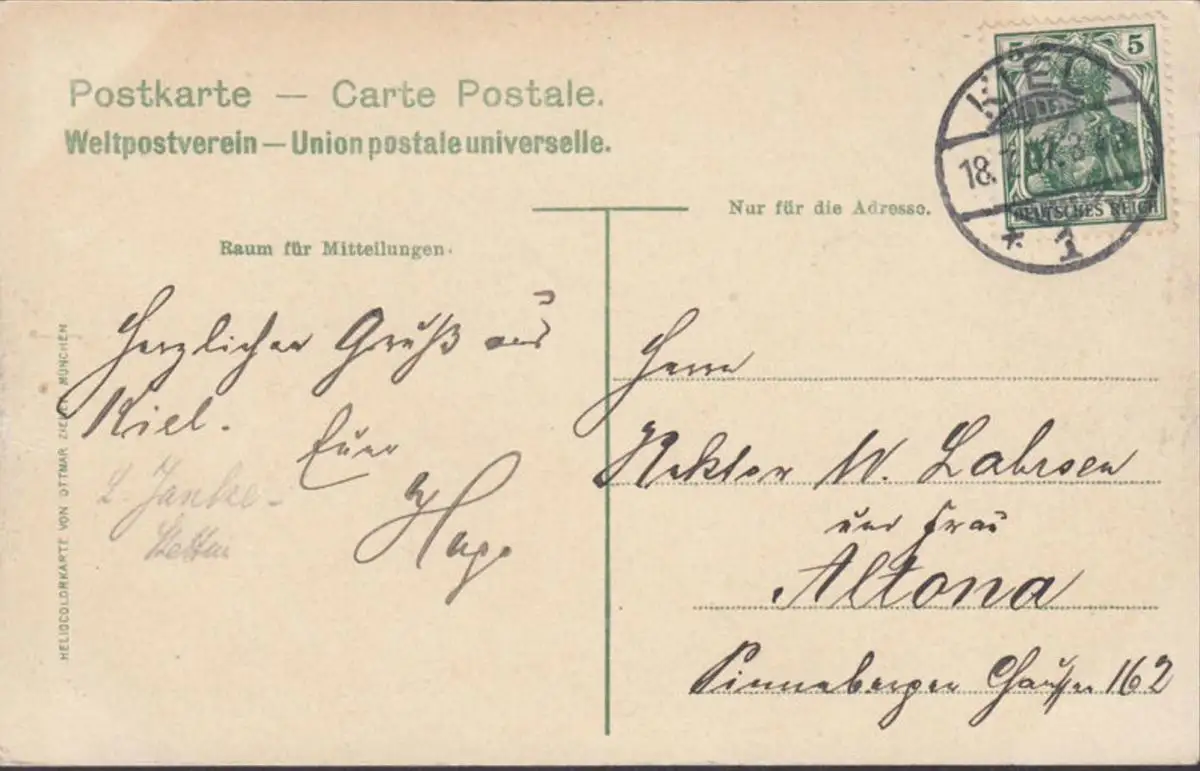 Postkarte — Carte Postale.
Weltpostverein — Union postale universelle.
Nur für die Adresse.
Raum für Mitteilungen.
5 5
KIEL
18.7.07. 3-4
DEUTSCHES REICH
* 1
Herzlichen Gruß aus
Kiel.
Euer
Hugo
Herrn
Rektor W. Lahrsen
und Frau
Altona
Pinneberger Chaussee 162
HELIOCOLORKARTE VON OTTMAR ZIEHER MÜNCHEN